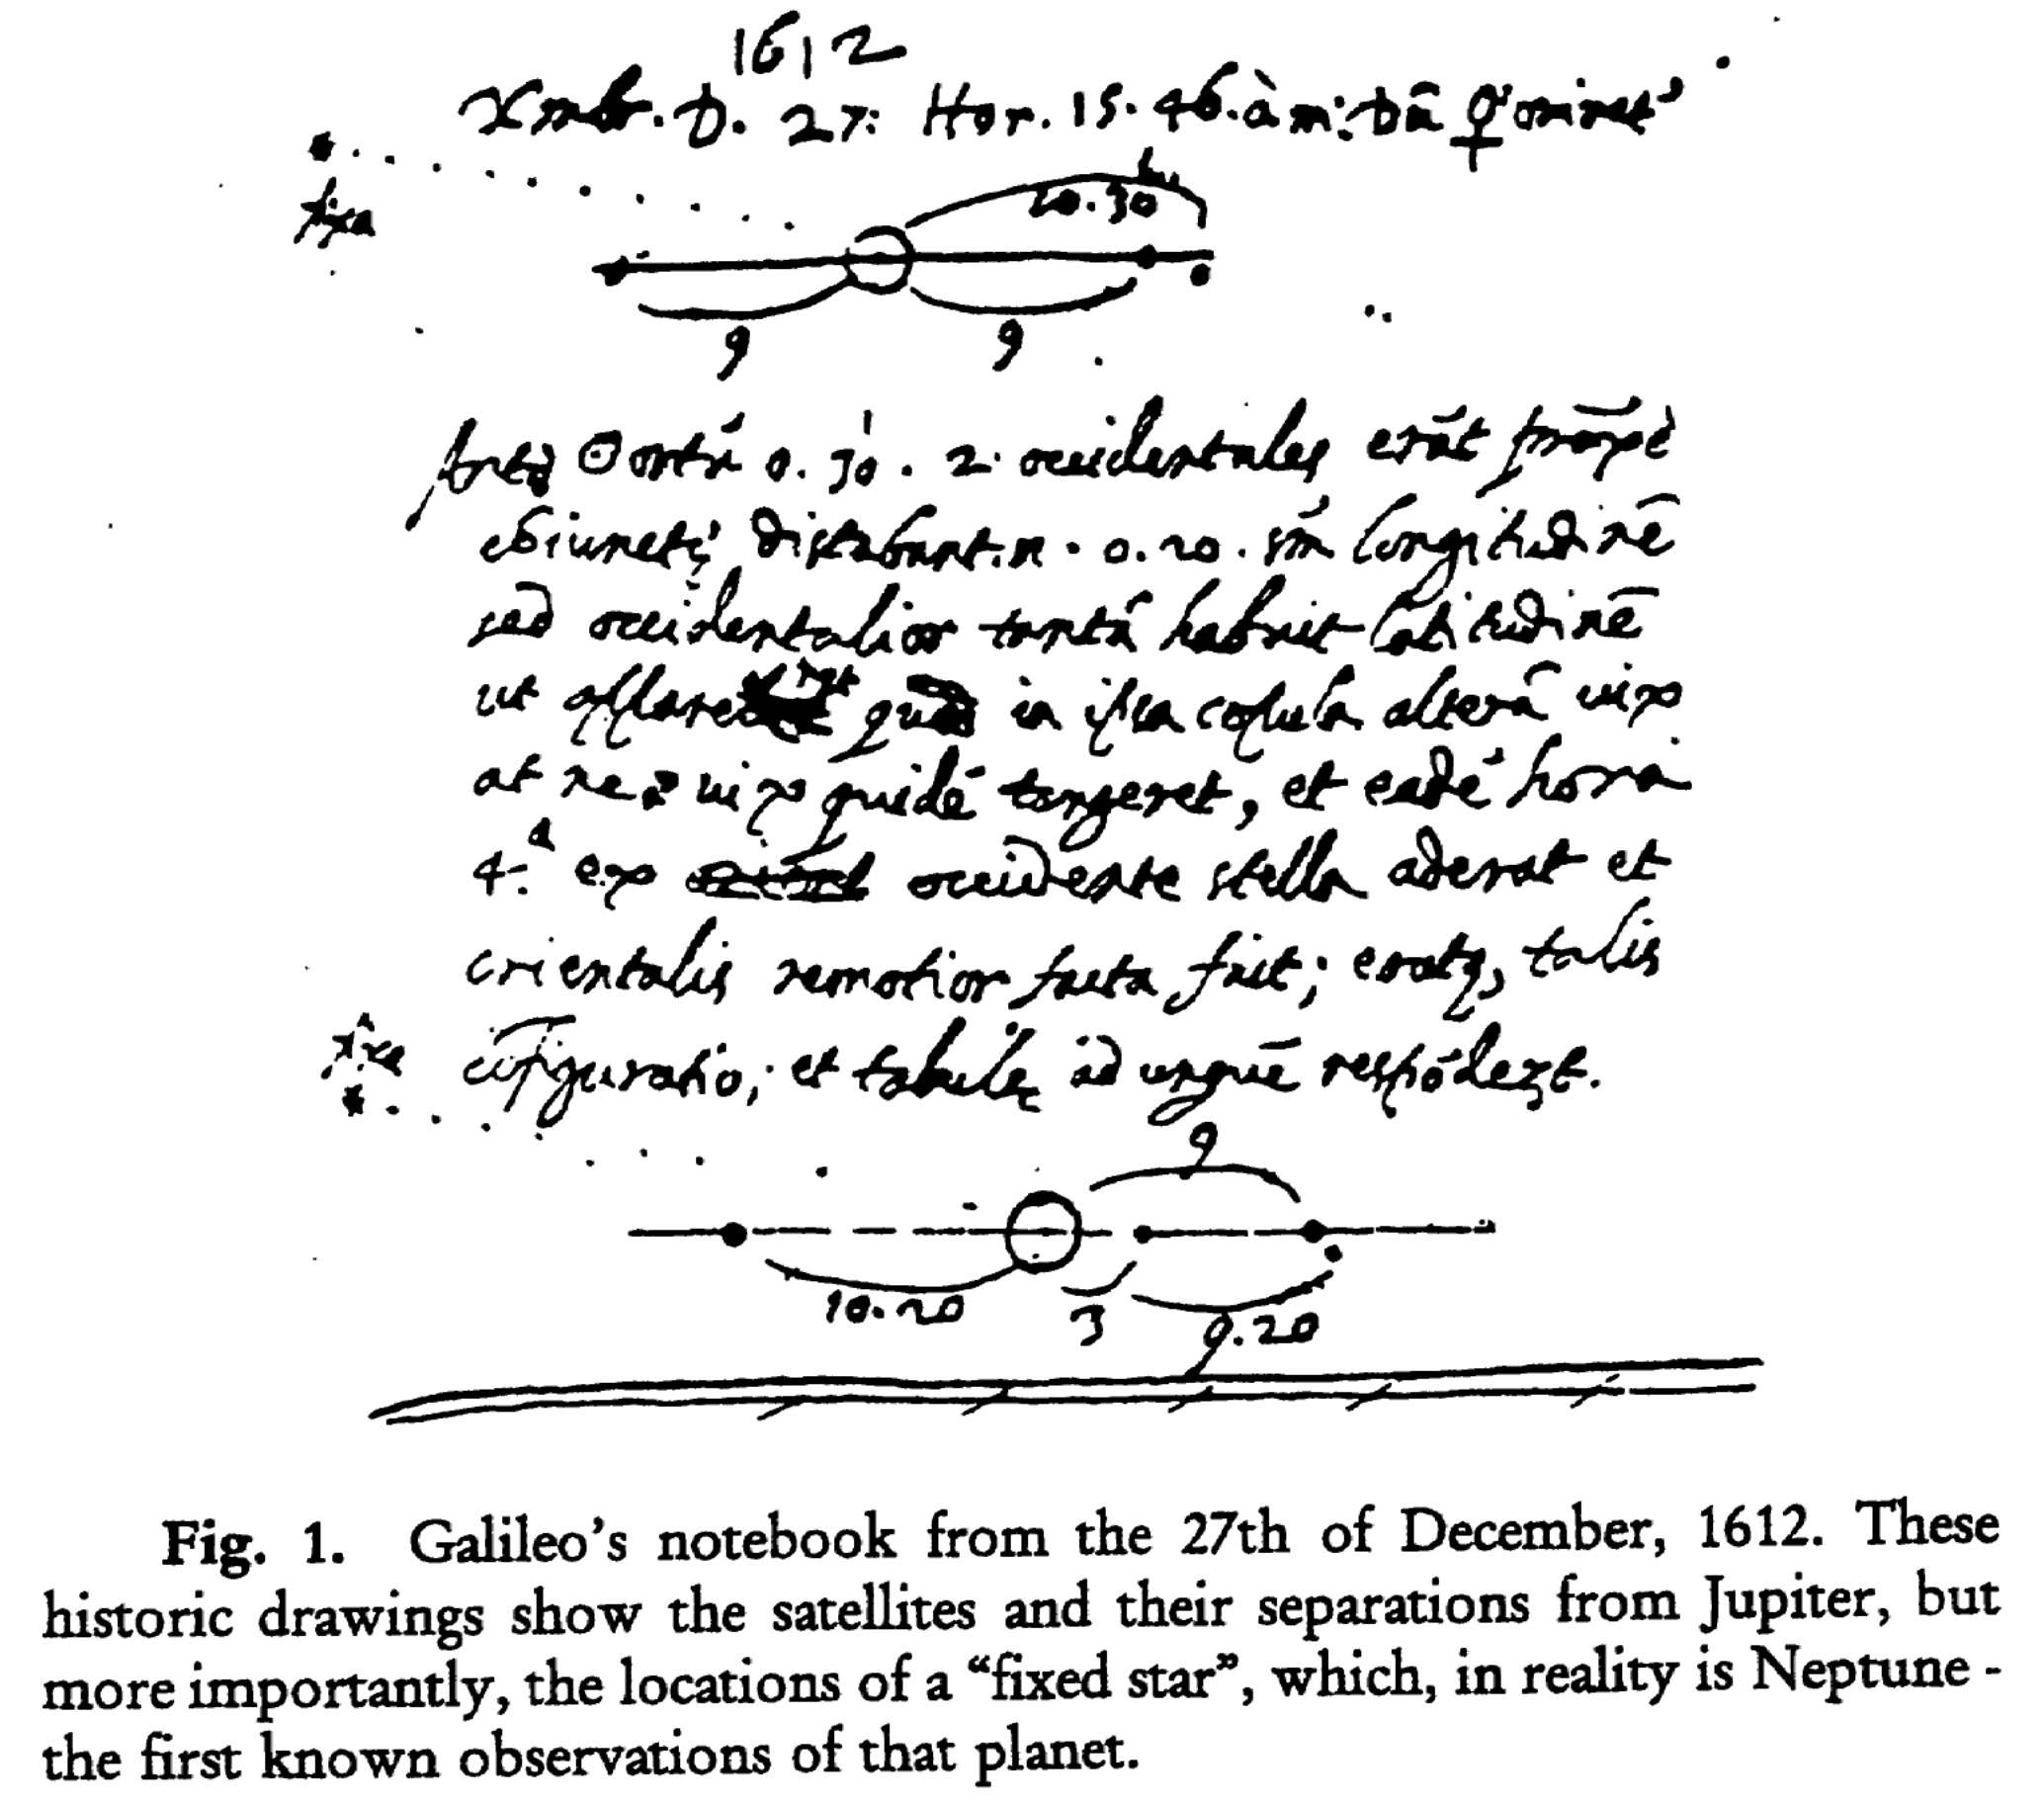 1612
Xmb. D. 27: Hor. 15. 46. à m:
fixa
10.30
9 9
0. 30. 2. occidentales erāt prope
distabant. n. 0. 20. longitudinē
sed occidentalior tantā habuit latitudinē
ut in ipsa alterā uix
at uix quidē tangeret, et eadē hora
4.ª ex occidente stella aderat et
orientalis remotior facta fuit; eratq, talis
fixa cōfiguratio; et tabulę ad unguē respōdent.
9
10.20 3 9.20
Fig. 1. Galileo's notebook from the 27th of December, 1612. These
historic drawings show the satellites and their separations from Jupiter, but
more importantly, the locations of a “fixed star”, which, in reality is Neptune -
the first known observations of that planet.